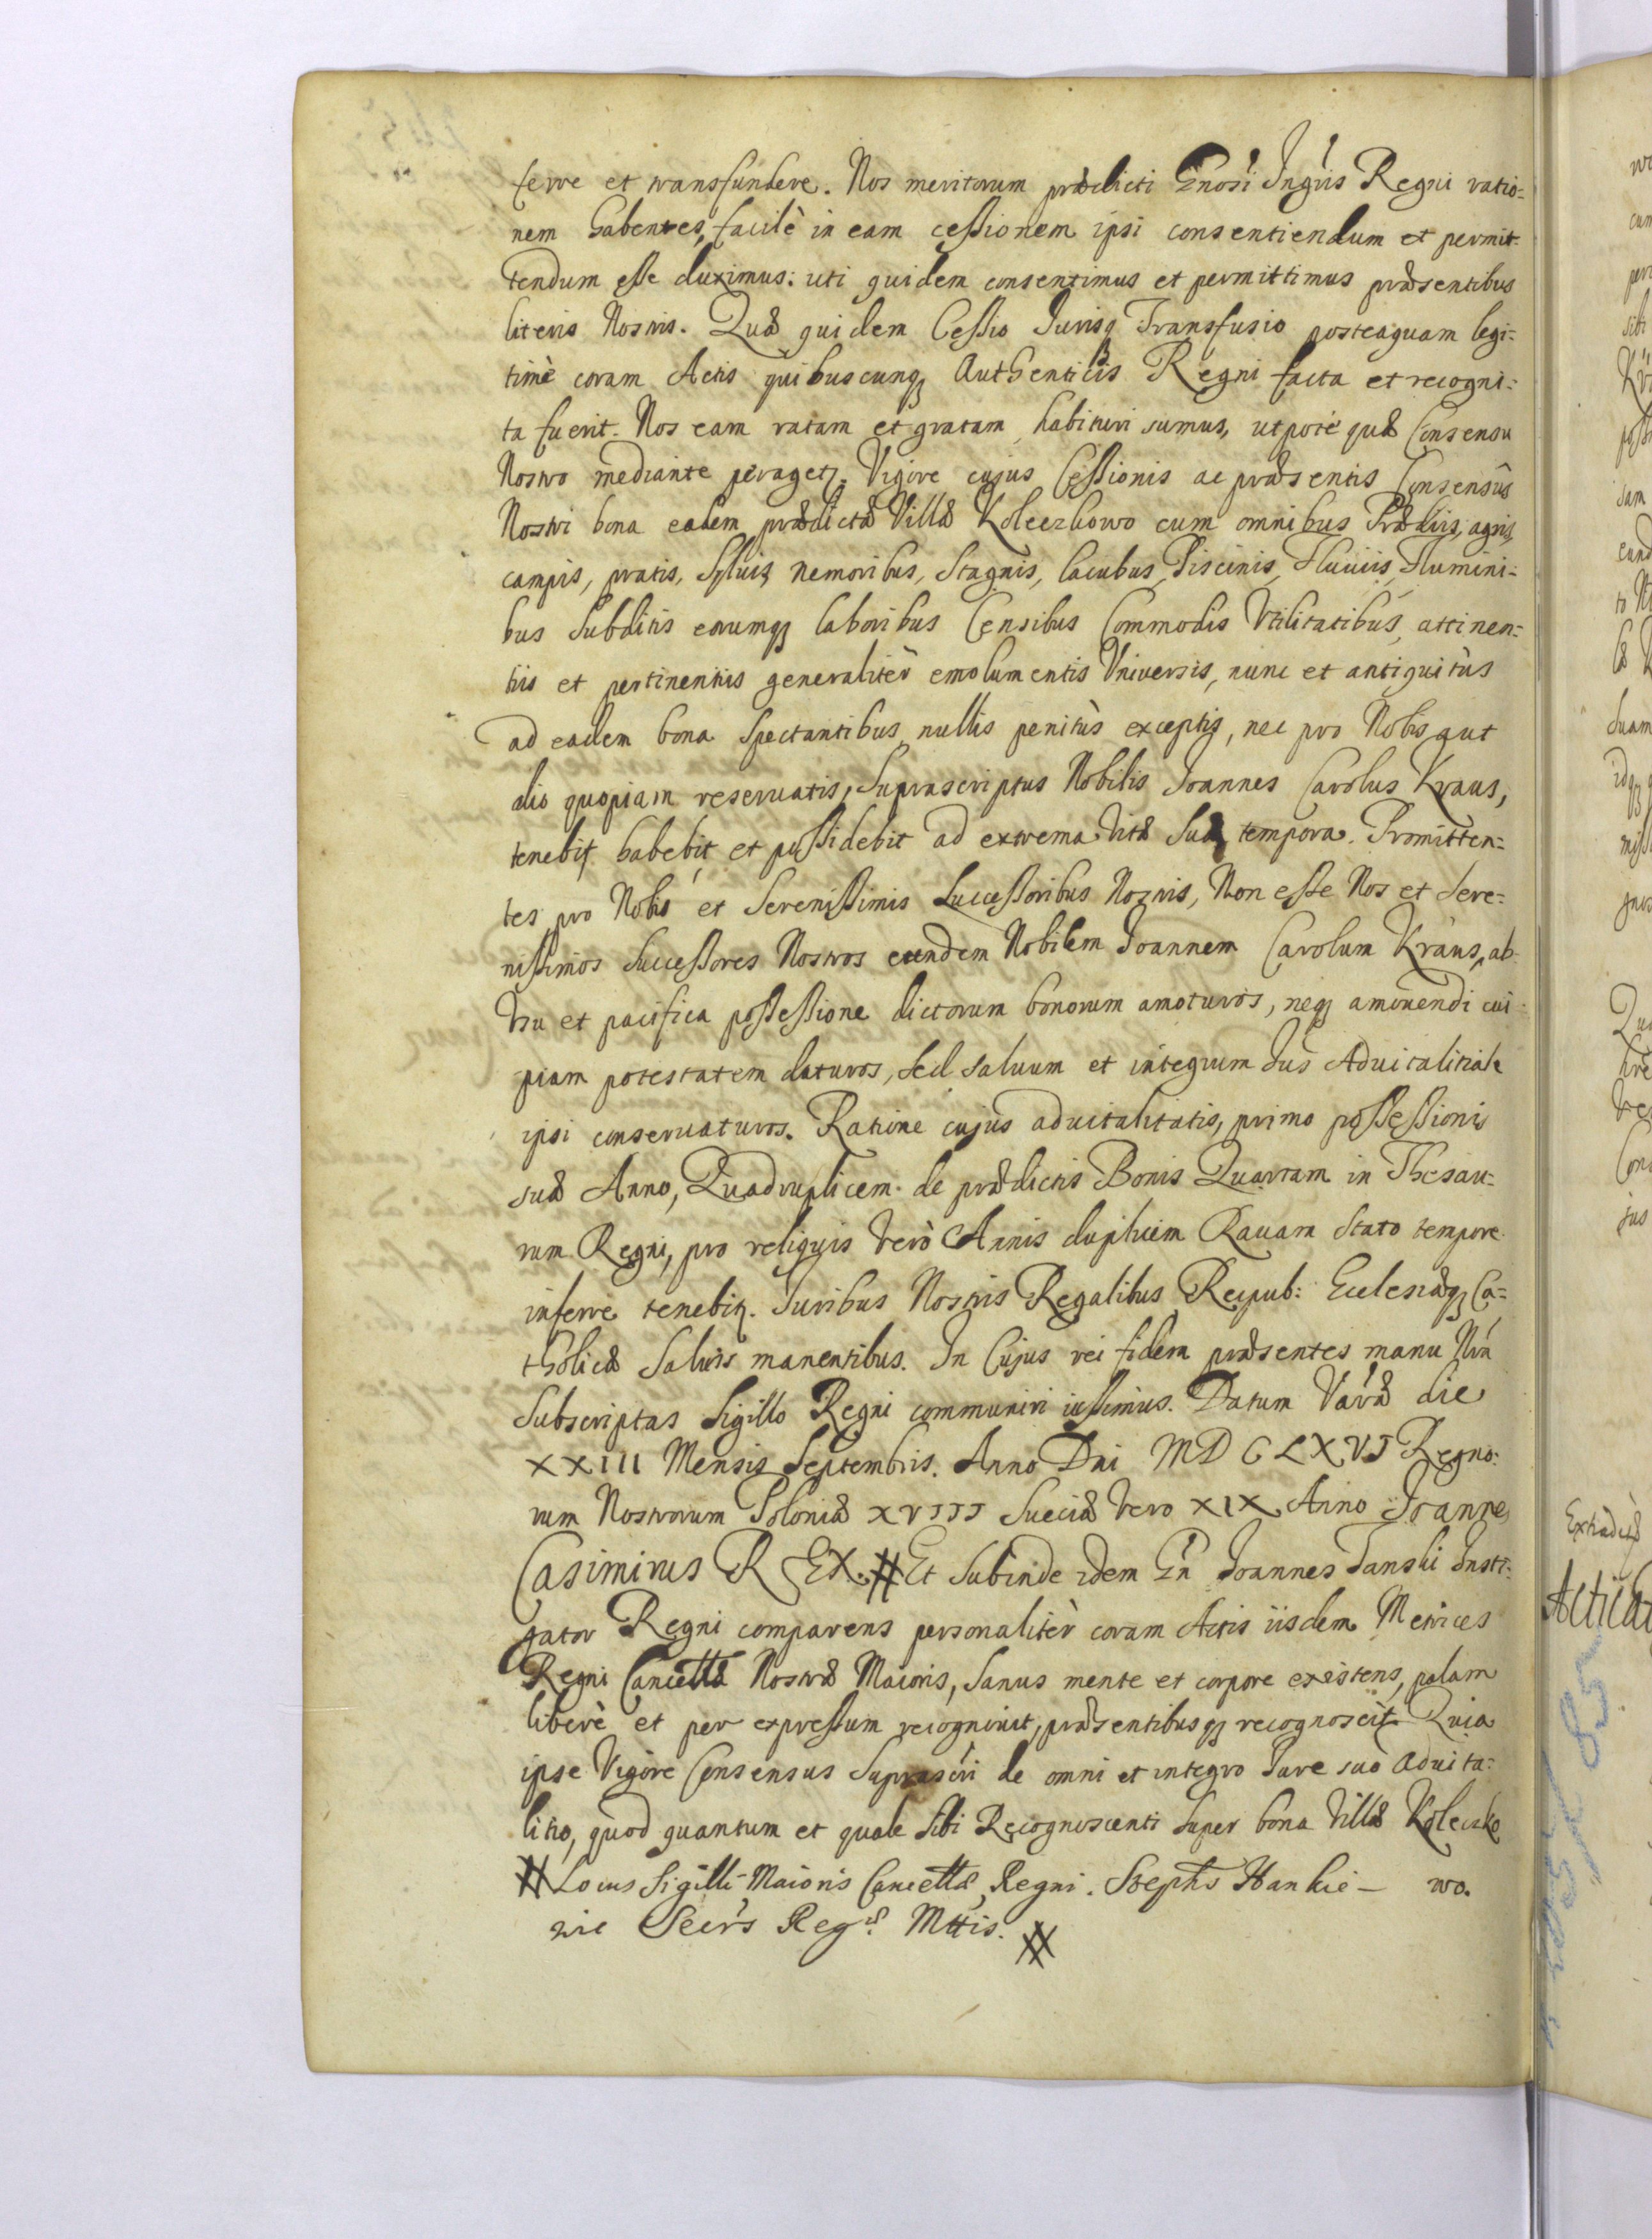 ferre et transfundere. Nos meritorum prædicti Gnosi Ingris Regni ratio=
nem habentes, facilè in eam cessionem ipsi consentiendum et permit=
tendum esse duximus: uti quidem consentimus et permittimus præsentibus
literis Nostris. Quæ quidem Cessio Jurisq Transfusio posteaquam legi=
timè coram Actis quibuscunq Authenticis Regni facta et recogni=
ta fuerit. Nos eam ratam et gratam habituri sumus, utpote quæ Consensu
Nostro mediante peragetr. Vigore cujus Cessionis ac præsentis Consensûs
Nostri bona eadem prædictæ Villæ Koleczkowo cum omnibus Prædiis, agris,
campis, pratis, Syluis, nemoribus, Stagnis, lacubus, Piscinis, Fluuiis, Flumini=
bus Subditis eorumq laboribus Censibus Commodis Vtilitatibus, attinen=
tiis et pertinentiis generalitèr emolumentis Vniversis, nunc et antiquitùs
ad eadem bona Spectantibus, nullis penitùs exceptis, nec pro Nobis aut
alio quopiam reseruatis, Suprascriptus Nobilis Joannes Carolus Kraus,
tenebit, habebit et possidebit ad extrema Vitæ Suæ tempora. Promitten=
tes pro Nobis et Serenissimis Successoribus Nostris, Non esse Nos et Sere=
nissimos Successores Nostros eundem Nobilem Joannem Carolum Kraus, ab
Vsu et pacifica possessione dictorum bonorum amoturos, neq amouendi cui
piam potestatem daturos, Sed saluum et integrum Jus Aduitalitiale
ipsi conseruaturos. Ratione cujus aduitalitatis, primo possessionis
suæ Anno, Quadruplicem de prædictis Bonis Quartam in Thesau=
rum Regni, pro reliquis Verò Annis duplicem Ravam Stato tempore
inferre tenebitr. Juribus Nostris Regalibus Reipub: Ecclesiæq Ca=
tholicæ Saluis manentibus. In Cujus rei fidem præsentes manu Nrâ
Subscriptas Sigillo Regni communiri iussimus. Datum Varæ die
XXIII Mensis Septembris. Anno Dni MDCLXVI Regno=
rum Nostrorum Poloniæ XVIII Sueciæ Vero XIX Anno Joannes
Casimirus REX. # Et Subinde idem Gn Joannes Tanski Insti=
gator Regni comparens personalitèr coram Actis iisdem Metrices
Regni Cancellæ Nostræ Maioris, Sanus mente et corpore existens, palam
liberè et per expressum recognouit, præsentibusq recognoscit. Quia
ipse Vigore Consensus Suprascri de omni et integro Jure suo aduita=
litio, quod quantum et quale Sibi Recognoscenti Super bona Villæ Koleczko
# Locus Sigilli Maioris Cancellæ Regni. Stephs Hankie – wo.
wic Secrs Regæ Mttis. #
Actica